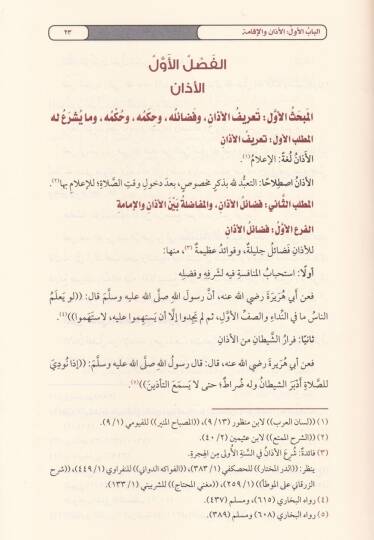 البابُ الأول: الأذان والإقامة
٢٣
الفَصْلُ الأَوَّلُ
الأذان
المَبحَثُ الأوَّل: تَعريفُ الأذانِ، وفَضائلُه، وحِكَمُه، وحُكْمُه، وما يُشرَعُ له
المطلب الأول: تعريفُ الأذان
الأَذَانُ لُغَةً: الإعلامُ(١).
الأذانُ اصطِلاحًا: التعبُّد لله بذكرٍ مخصوصٍ، بعدَ دخولِ وقتِ الصَّلاةِ؛ للإعلامِ بها(٢).
المطلب الثَّاني: فضائلُ الأذان، والمفاضلةُ بَيْنَ الأذانِ والإمامةِ
الفرع الأوَّلُ: فضائلُ الأذان
للأذانِ فضائلُ جليلةٌ، وفوائدُ عظيمةٌ(٣)، منها:
أولًا: استحبابُ المنافسةِ فيه لشَرفِه وفضلِه
فعن أبي هُرَيرَةَ رضي الله عنه، أنَّ رسولَ اللهِ صلَّى الله عليه وسلَّمَ قال: ((لو يَعلَمُ
الناسُ ما في النِّداءِ والصفِّ الأوَّلِ، ثم لم يَجِدوا إلَّا أن يَستَهِموا عليه، لاستَهَموا))(٤).
ثانيًا: فرارُ الشَّيطانِ من الأذانِ
فعن أبي هُرَيرَةَ رضي الله عنه، قال: قال رسولُ اللهِ صلَّى الله عليه وسلَّمَ: ((إذا نُودِيَ
للصَّلاةِ أَدْبَرَ الشيطانُ وله ضُراطٌ؛ حتى لا يَسمَعَ التأذينَ))(٥).
(١) ((لسان العرب)) لابن منظور (١٣/ ٩)، ((المصباح المنير)) للفيومي (١/ ٩).
(٢) ((الشرح الممتع)) لابن عثيمين (٢/ ٤٠).
(٣) فائدةٌ: شُرِعَ الأذانُ في السَّنةِ الأولى مِن الهِجرةِ.
يُنظر: ((الدر المختار)) للحصكفي (١/ ٣٨٣)، ((الفواكه الدواني)) للنفراوي (١/ ٤٤٩)، ((شرح
الزرقاني على الموطأ)) (١/ ٢٥٩)، ((مغني المحتاج)) للشربيني (١/ ١٣٣).
(٤) رواه البخاري (٦١٥)، ومسلم (٤٣٧).
(٥) رواه البخاري (٦٠٨) ومسلم (٣٨٩).